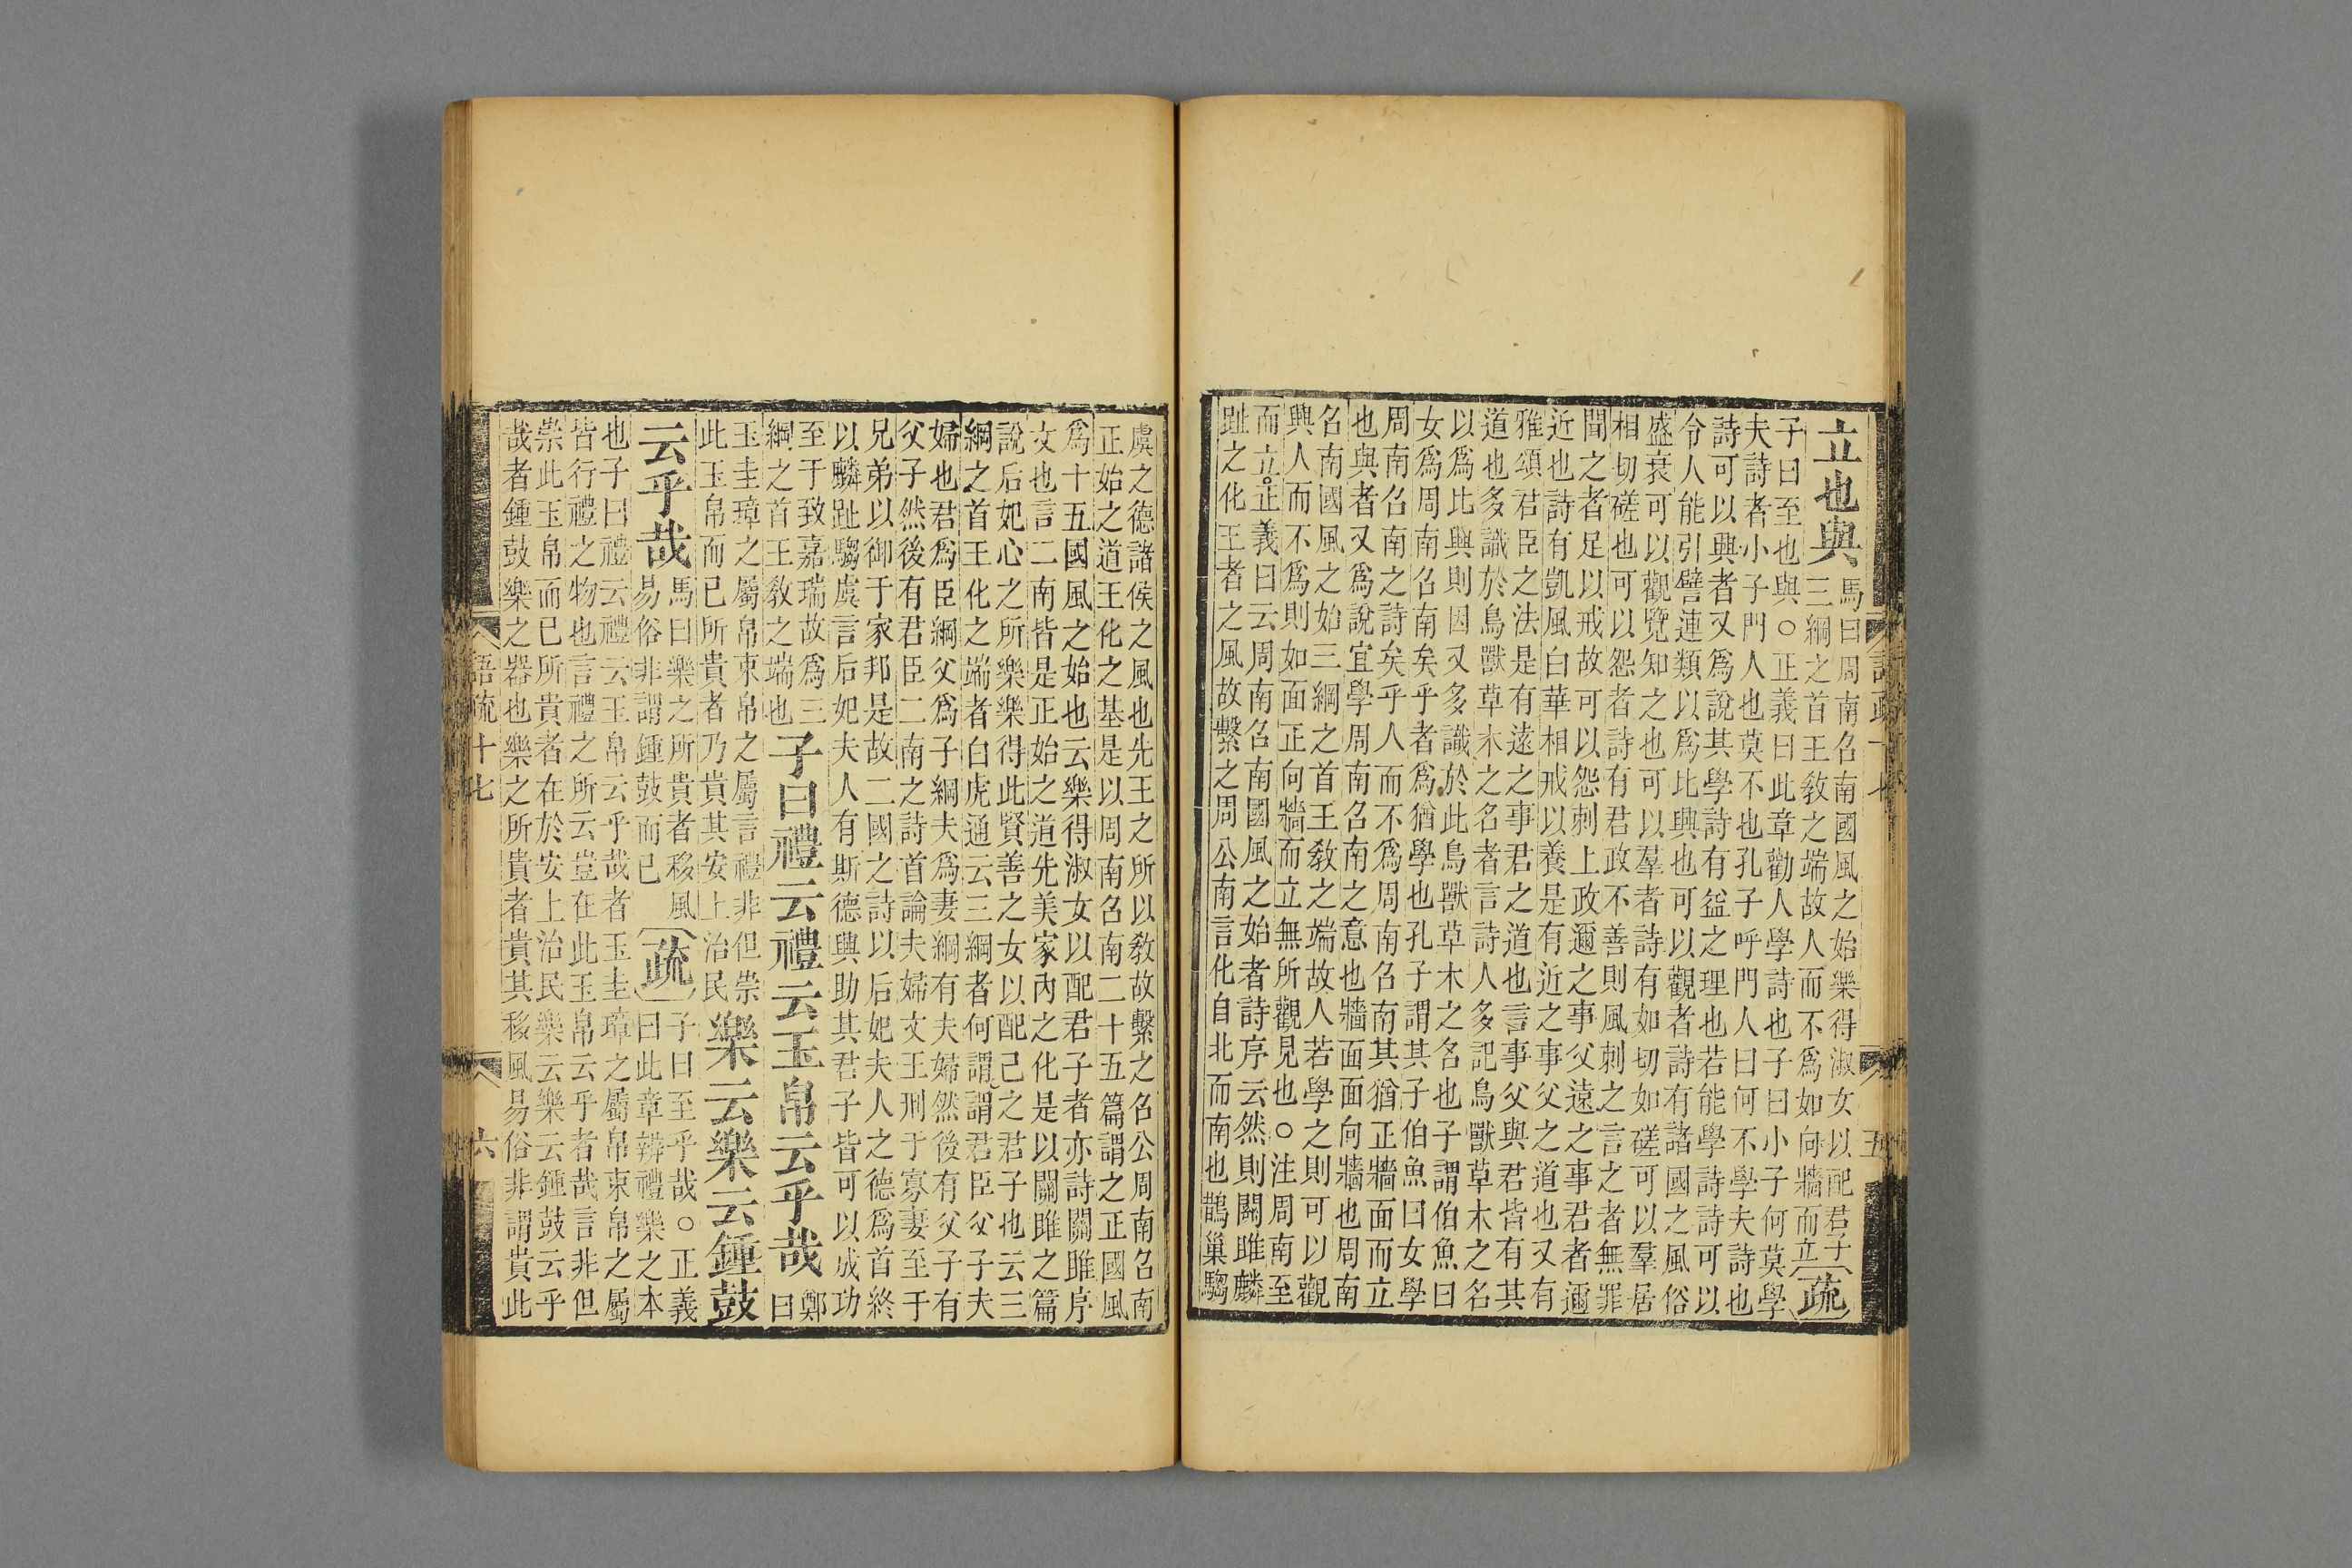 立也與
馬曰周南召南國風之始樂得淑女以配君子
三綱之首王敎之端故人而不爲如向牆而立
疏
子曰至也與○正義曰此章勸人學詩也子曰小子何莫學
夫詩者小子門人也莫不也孔子呼門人曰何不學夫詩也
詩可以興者又爲說其學詩有益之理也若能學詩詩可以
令人能引譬連類以爲比興也可以觀者詩有諸國之風俗
盛衰可以觀覽知之也可以羣者詩有如切如磋可以羣居
相切磋也可以怨者詩有君政不善則風刺之言之者無罪
聞之者足以戒故可以怨刺上政邇之事父遠之事君者邇
近也詩有凱風白華相戒以養是有近之事父之道也又有
雅頌君臣之法是有遠之事君之道也言事父與君皆有其
道也多識於鳥獸草木之名者言詩人多記鳥獸草木之名
以爲比興則因又多識於此鳥獸草木之名也子謂伯魚曰
女爲周南召南矣乎者爲猶學也孔子謂其子伯魚曰女學
周南召南之詩矣乎人而不爲周南召南其猶正牆面而立
也與者又爲說宜學周南召南之意也牆面面向牆也周南
名南國風之始三綱之首王敎之端故人若學之則可以觀
興人而不爲則如面正向牆而立無所觀見也○注周南至
而立○正義曰云周南召南國風之始者詩序云然則關雎麟
趾之化王者之風故繫之周公南言化自北而南也鵲巢騶
五
虞之德諸侯之風也先王之所以敎故繫之名公周南召南
正始之道王化之基是以周南召南二十五篇謂之正國風
爲十五國風之始也云樂得淑女以配君子者亦詩關雎序
文也言二南皆是正始之道先美家內之化是以關雎之篇
說后妃心之所樂樂得此賢善之女以配己之君子也云三
綱之首王化之端者白虎通云三綱者何謂謂君臣父子夫
婦也君爲臣綱父爲子綱夫爲妻綱有夫婦然後有父子有
父子然後有君臣二南之詩首論夫婦文王刑于寡妻至于
兄弟以御于家邦是故二國之詩以后妃夫人之德爲首終
以麟趾騶虞言后妃夫人有斯德與助其君子皆可以成功
至于致嘉瑞故爲三
綱之首王敎之端也
子曰禮云禮云玉帛云乎哉
鄭
曰
玉圭璋之屬帛束帛之屬言禮非但崇
此玉帛而已所貴者乃貴其安上治民
樂云樂云鍾鼓
云乎哉
馬曰樂之所貴者移風
易俗非謂鍾鼓而已
疏
子曰至乎哉○正義
曰此章辨禮樂之本
也子曰禮云禮云玉帛云乎哉者玉圭璋之屬帛束帛之屬
皆行禮之物也言禮之所云豈在此玉帛云乎者哉言非但
崇此玉帛而已所貴者在於安上治民樂云樂云鍾鼓云乎
哉者鍾鼓樂之器也樂之所貴者貴其移風易俗非謂貴此
語疏十七
六